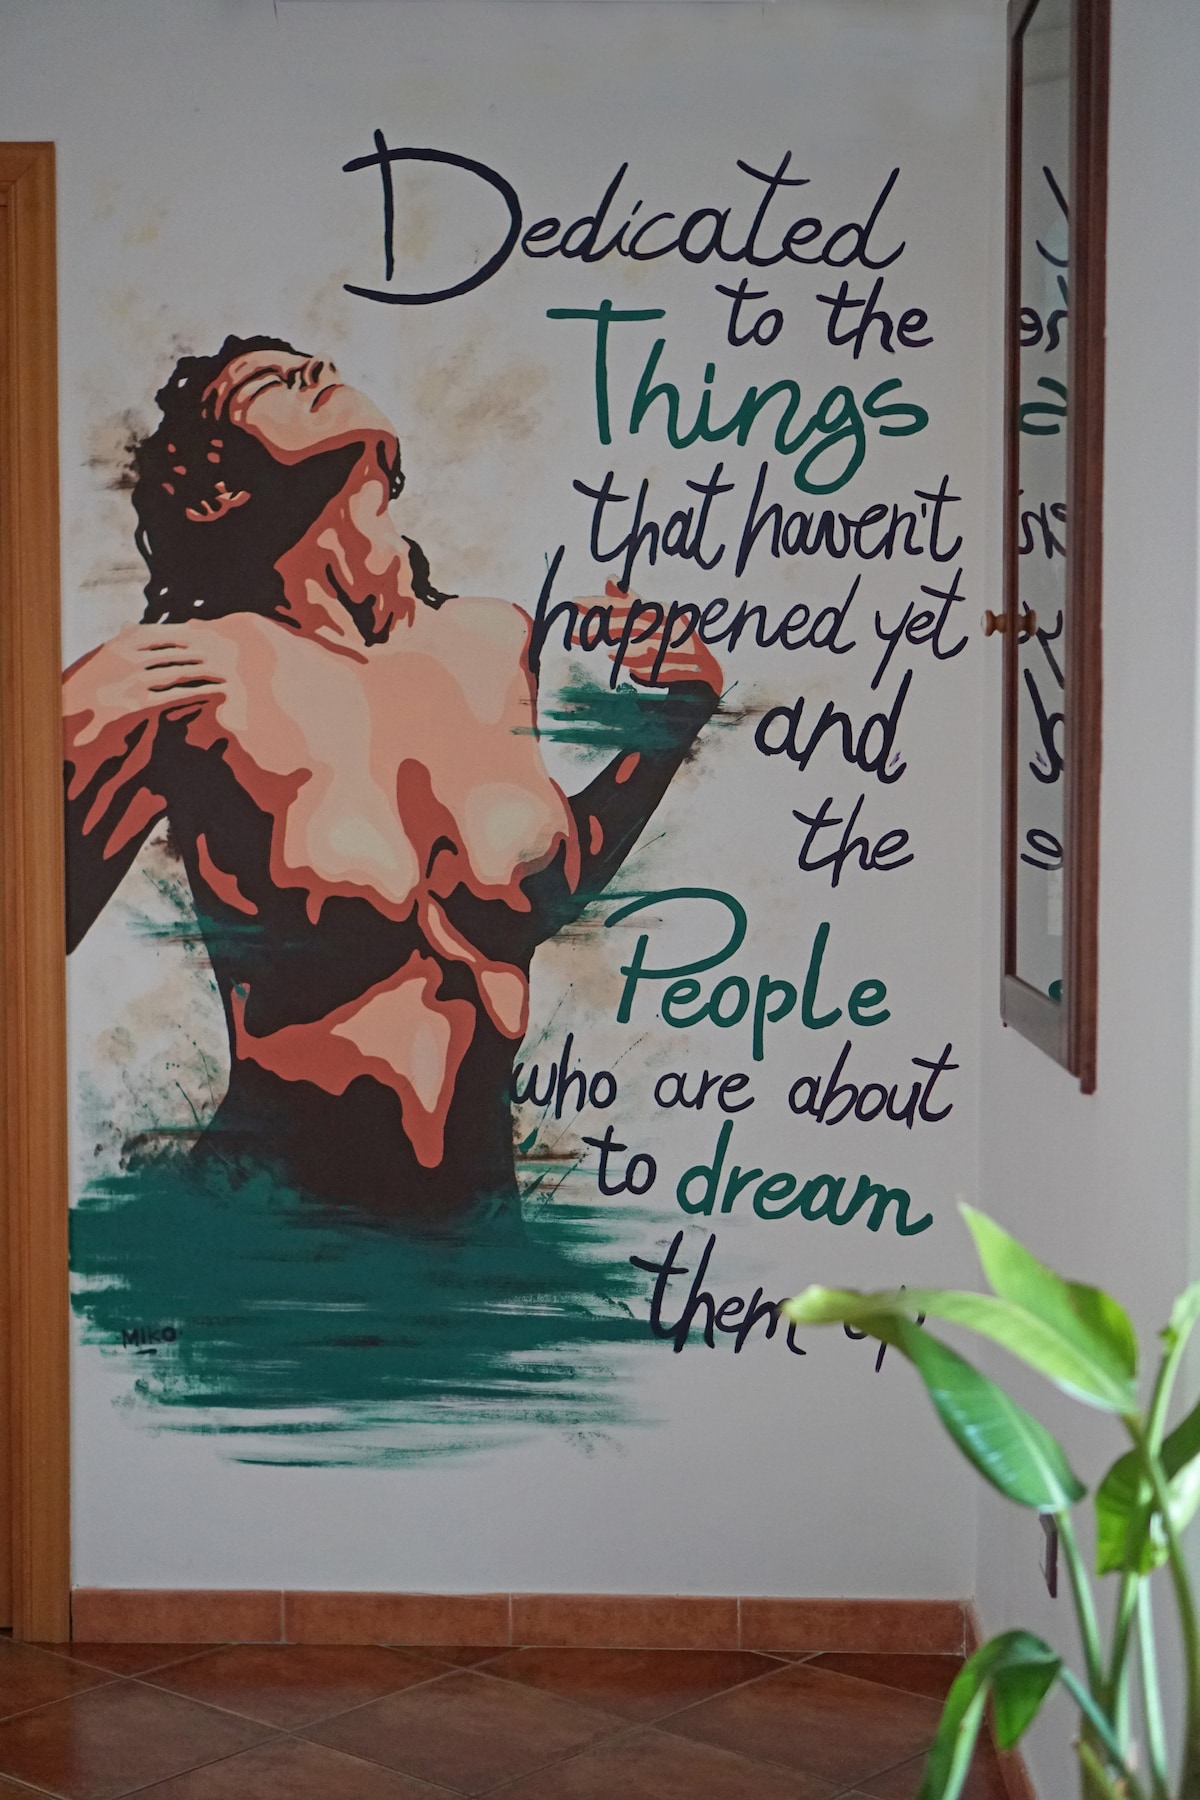 Dedicated
to the
Things
that haven't
happened yet
and
the
People
who are about
to dream
them up
Miko